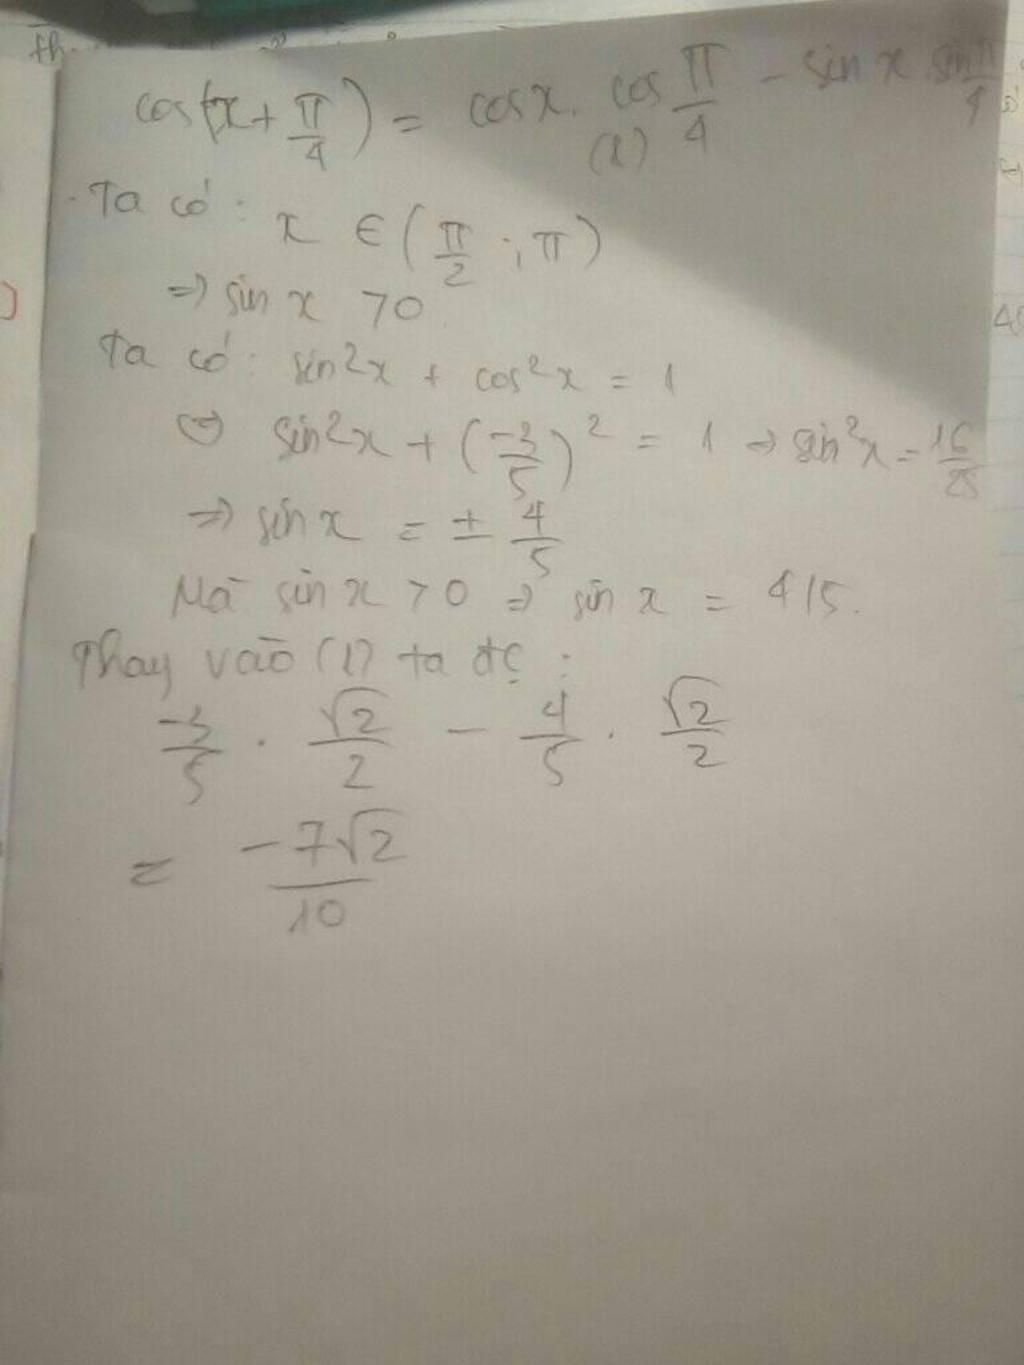 th
cos(x + π/4) = cosx. cos π/4 - sin x sin π/4
(1)
Ta có: x ∈ (π/2 ; π)
=> sin x > 0
Ta có: sin²x + cos²x = 1
<=> sin²x + (-3/5)² = 1 => sin²x = 16/25
=> sin x = ± 4/5
Mà sin x > 0 => sin x = 4/5.
Thay vào (1) ta đc :
-3/5 . √2/2 - 4/5 . √2/2
= -7√2/10